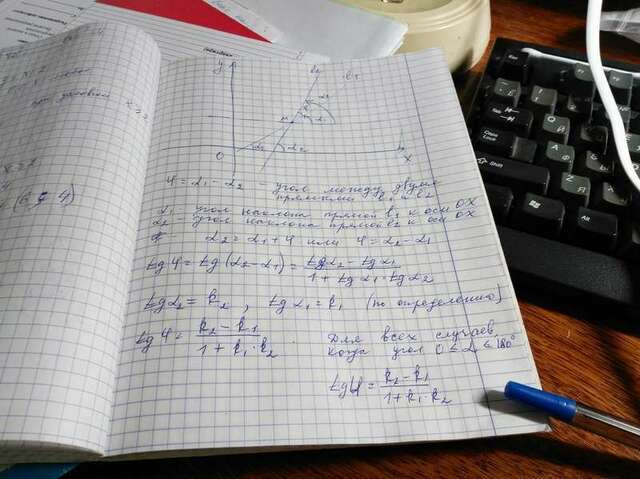 y
l2
l1
M
O
α1
α2
x
φ = α1 - α2 - угол между двумя
прямыми l1 и l2
α1 - угол наклона прямой l1 к оси OX
α2 угол наклона прямой l2 к оси OX
α2 = α1 + φ или φ = α2 - α1
tg φ = tg (α2 - α1) = tg α2 - tg α1 / 1 + tg α1 · tg α2
tg α2 = k2 , tg α1 = k1 (по определению)
tg φ = k2 - k1 / 1 + k1 · k2
Для всех случаев,
когда угол 0 ≤ α ≤ 180°
tg φ = k2 - k1 / 1 + k1 · k2
x ≥ 2